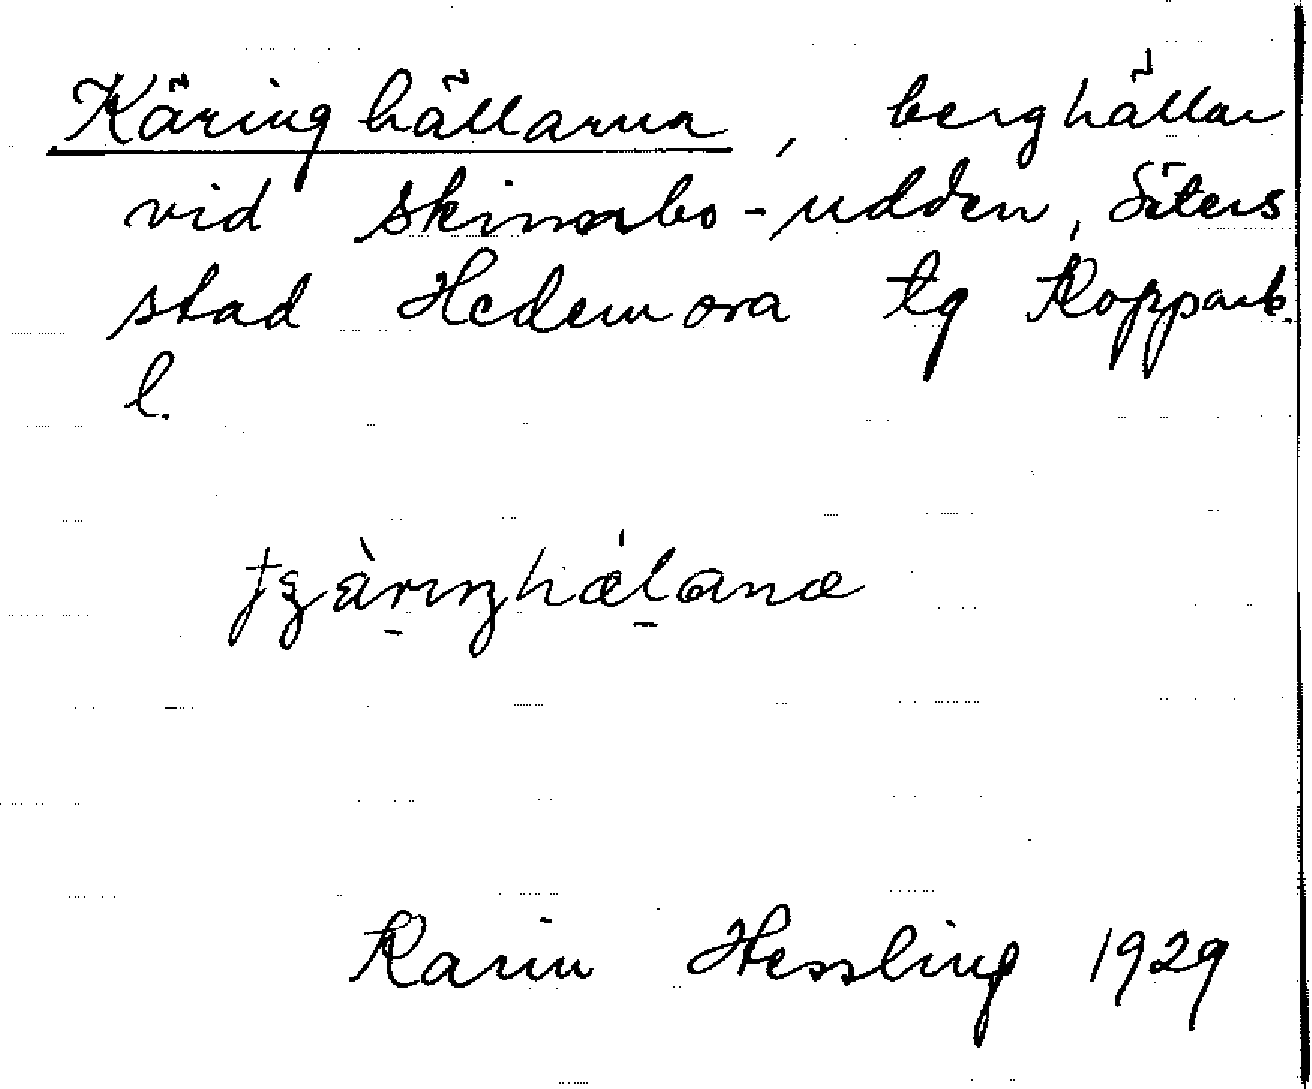 Käringhällarna, berghällar
vid Skinnarbo-udden, Säters
stad Hedemora tg Kopparb.
l.
Karin Hessling 1929